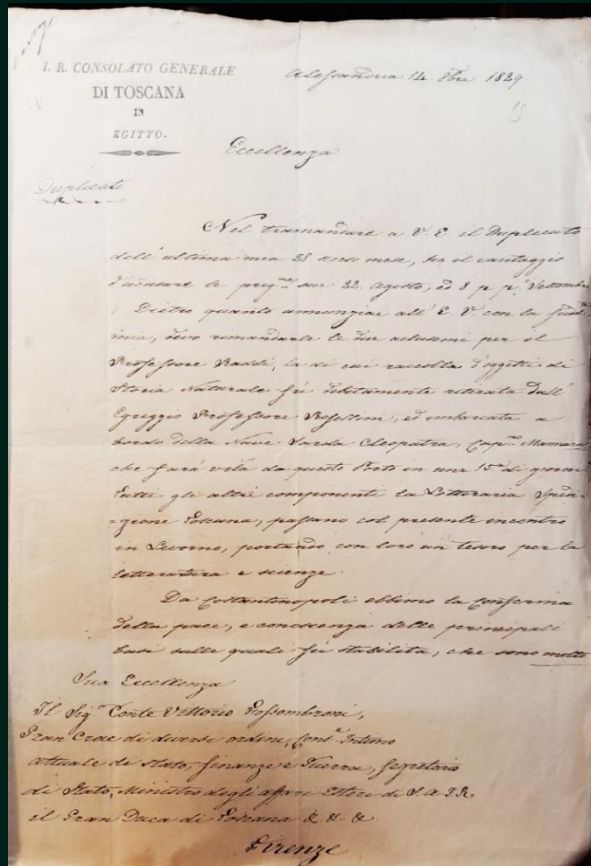 I. R. CONSOLATO GENERALE
DI TOSCANA
IN
EGITTO.
Alessandria 14 8bre 1829
Eccellenza
Duplicato
Nel tramandare a V. E. il Duplicato
dell'ultima mia 28 scorso mese, ho il vantaggio
d'accusare le preg.me sue 22. Agosto, ed 8 p. p.o Settembre
Dietro quanto annunziai all' E. V. con la sud.
mia, devo rimandarle le due acclusemi per il
Professore Raddi, la di cui raccolta d'oggetti di
Storia Naturale fù debitamente ritirata dall'
Egreggio Professore Rosellini, ed imbarcata a
bordo della Nave Sarda Cleopatra, Cap.no
che farà vela da questo Porto in una 15.na di giorni
Tutti gli altri componenti la Letteraria Spedi=
=zione Toscana, passano col presente incontro
in Livorno, portando con loro un tesoro per la
letteratura e scienze.
Da Costantinopoli ebbimo la Conferma
della pace, e conoscenza delle principali
basi sulle quali fù stabilita, che sono molto
Sua Eccellenza
Il Sig.r Conte Vittorio Fossombroni,
Gran Croce di diversi ordini, Cons.e Intimo
attuale di Stato, finanze e Guerra, Segretario
di Stato, Ministro degli affari Esteri di S. A. I. R.
il Gran Duca di Toscana & & &
Firenze